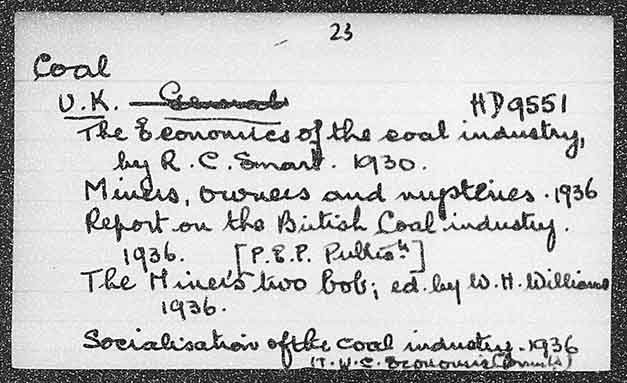 23
Coal
U.K. General HD9551
The Economics of the coal industry,
by R. C. Smart. 1930.
Miners, owners and mysteries. 1936
Report on the British Coal industry.
1936. [P.E.P. Publisʰ]
The Miner's two bob; ed. by W. H. Williams
1936.
Socialisation of the coal industry. 1936